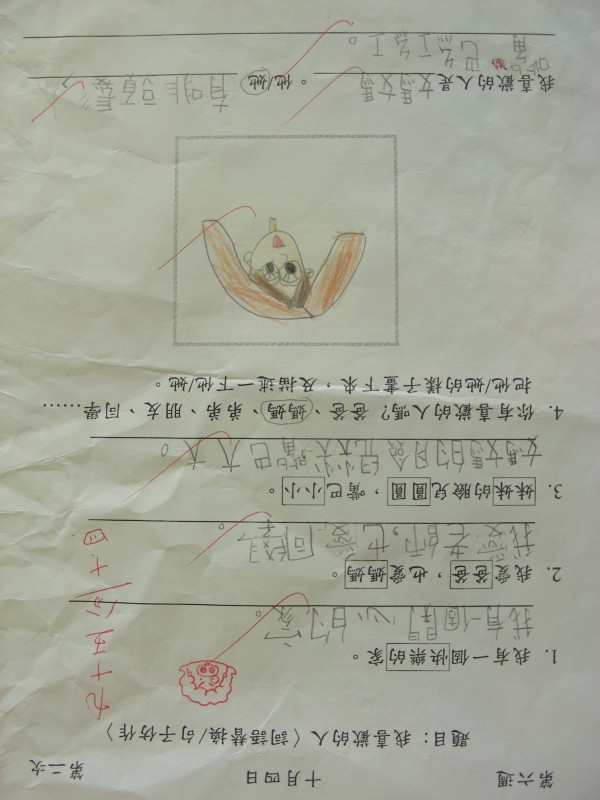 第六週 十月四日 第二次
題目：我喜歡的人〈詞語替換/句子仿作〉
九十五分
1. 我有一個快樂的家。
我有一個開心的家。
2. 我愛爸爸，也愛媽媽。
我愛老師，也愛同學。
3. 妹妹的臉兒圓圓，嘴巴小小。
媽媽的臉兒尖尖，嘴巴大大。
4. 你有喜歡的人嗎？爸爸、媽媽、弟弟、朋友、同學……
把他/她的樣子畫下來，及描述一下他/她。
我喜歡的人是媽媽。他/她有啡頭髮
嘴巴紅紅。